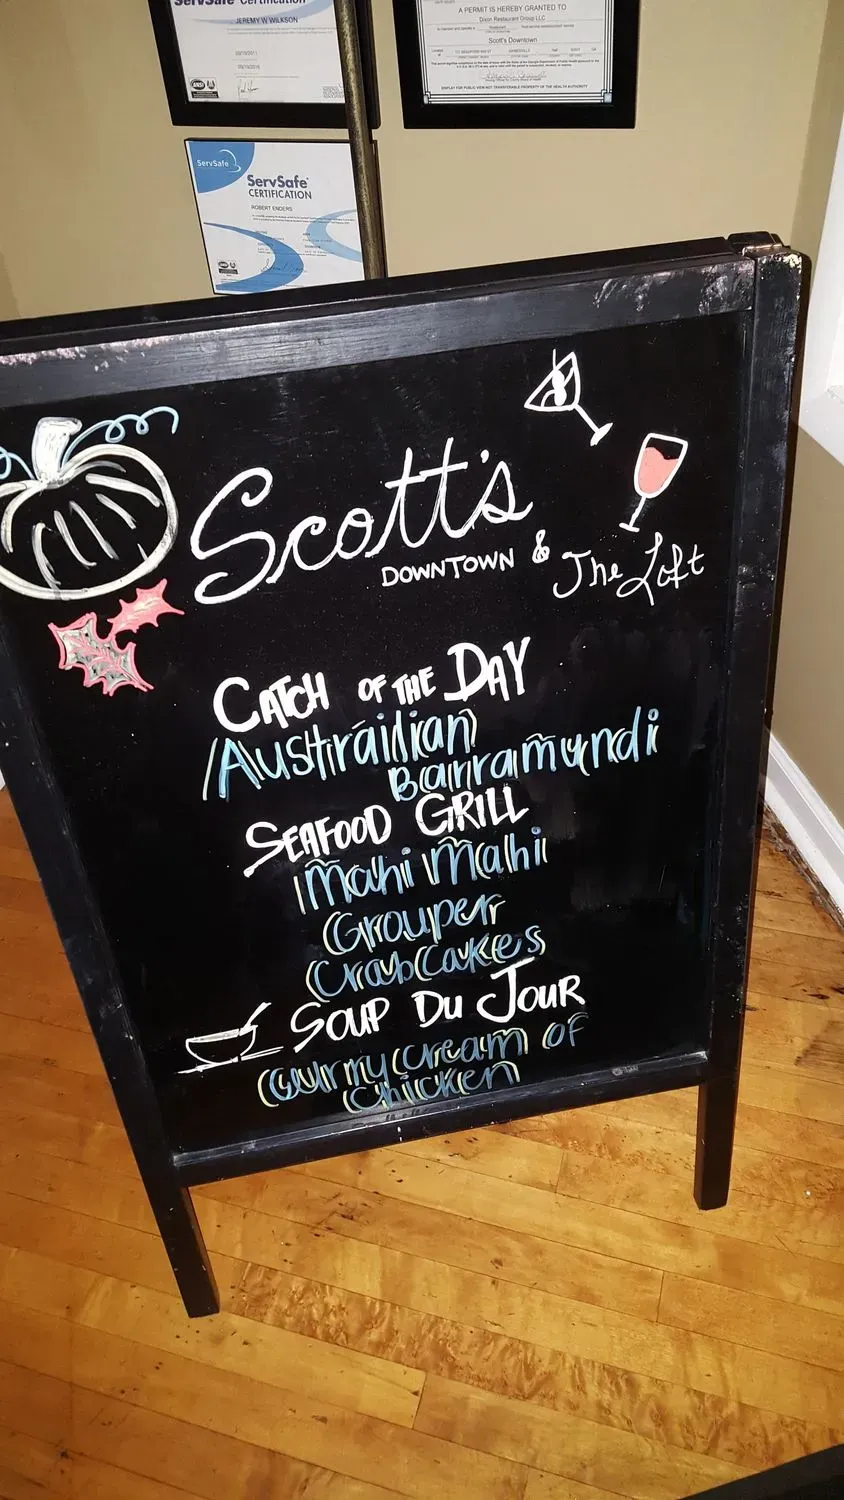 ServSafe Certification
JEREMY W WILKSON
A PERMIT IS HEREBY GRANTED TO
Dixon Restaurant Group LLC
Scott's Downtown
DISPLAY FOR PUBLIC VIEW NOT TRANSFERABLE PROPERTY OF THE HEALTH AUTHORITY
ServSafe
ServSafe®
CERTIFICATION
ROBERT ENDERS
Scott's
DOWNTOWN & The Loft
CATCH OF THE DAY
Austrailian
Barramundi
SEAFOOD GRILL
Mahi Mahi
Grouper
Crab Cakes
SOUP DU JOUR
Curry Cream of
Chicken